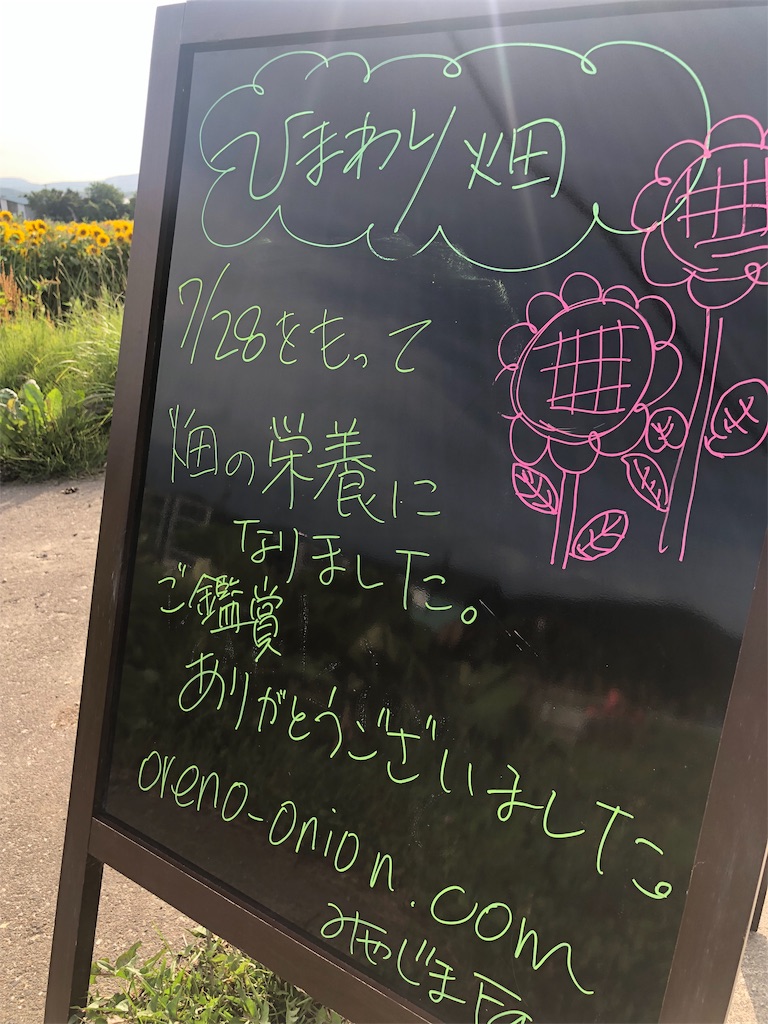 ひまわり畑
7/28をもって
畑の栄養に
なりました。
ご鑑賞
ありがとうございました。
oreno-onion.com
みやじま